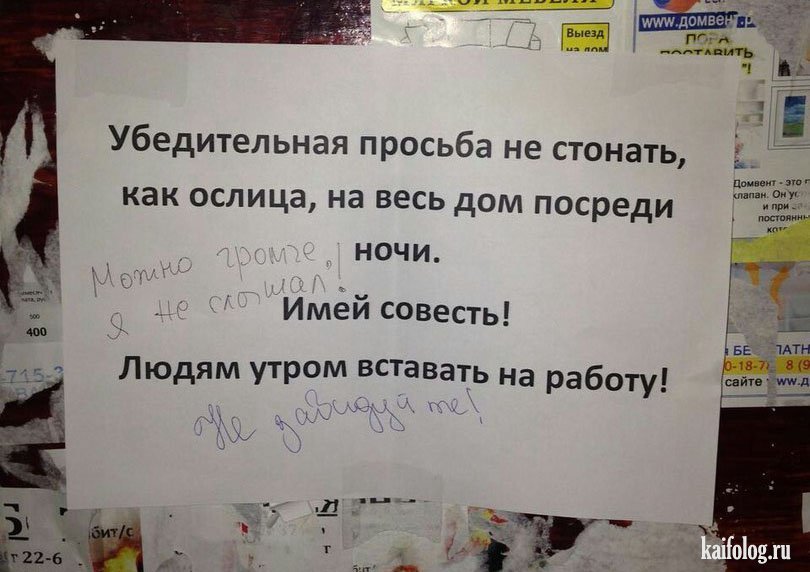 МЯГКОЙ МЕБЕЛИ
Выезд
на дом
www.домвент.р
ПОРА
ПОСТАВИТЬ
Убедительная просьба не стонать,
как ослица, на весь дом посреди
ночи.
Можно громче,
я не слышал!
Имей совесть!
Людям утром вставать на работу!
Не завидуйте!
Домвент - это
клапан.
и при
500
400
715-3
0-18-7 8 (9
сайте www.д
бит/с
г 22-6
Я
т
kaifolog.ru